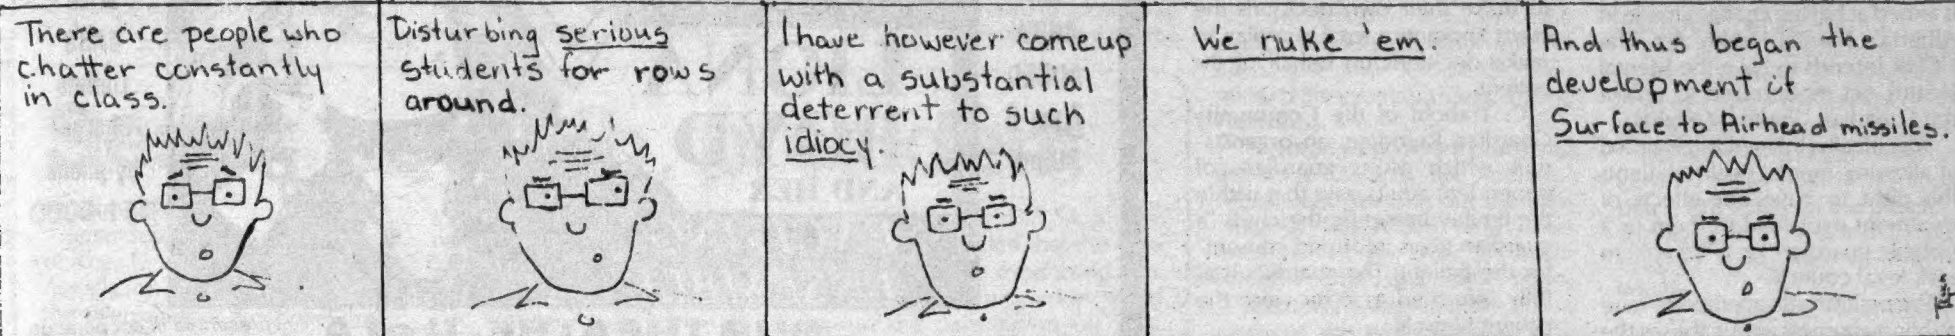 There are people who
chatter constantly
in class.
Disturbing serious
students for rows
around.
I have however come up
with a substantial
deterrent to such
idiocy.
We nuke 'em.
And thus began the
development of
Surface to Airhead missiles.